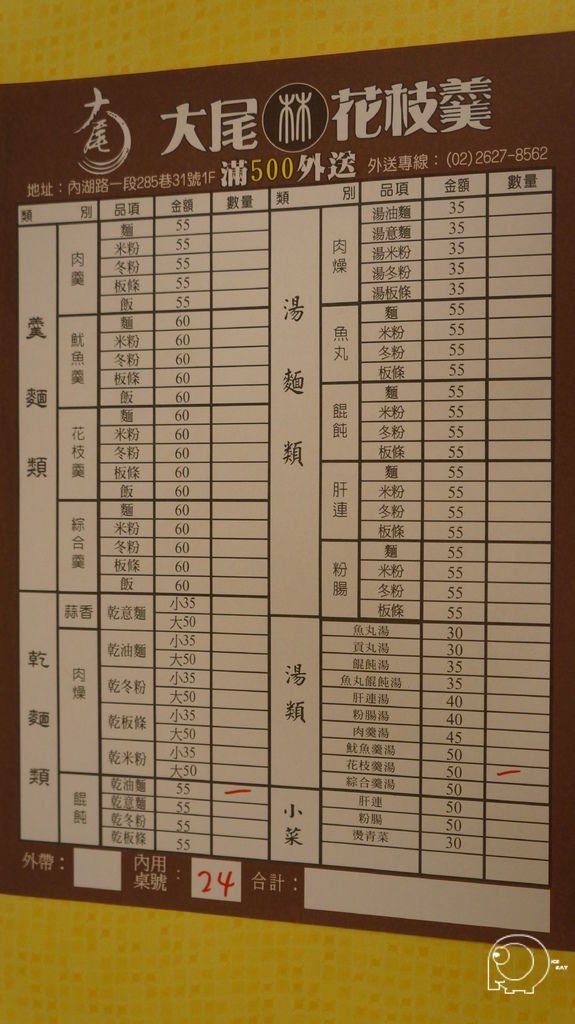 大尾
大尾 林 花枝羹
滿500外送
外送專線：(02)2627-8562
地址：內湖路一段285巷31號1F
類 別 品項 金額 數量
羹麵類
肉羹
麵 55
米粉 55
冬粉 55
板條 55
飯 55
魷魚羹
麵 60
米粉 60
冬粉 60
板條 60
飯 60
花枝羹
麵 60
米粉 60
冬粉 60
板條 60
飯 60
綜合羹
麵 60
米粉 60
冬粉 60
板條 60
飯 60
乾麵類
蒜香
乾意麵 小35
大50
肉燥
乾油麵 小35
大50
乾冬粉 小35
大50
乾板條 小35
大50
乾米粉 小35
大50
餛飩
乾油麵 55 一
乾意麵 55
乾冬粉 55
乾板條 55
類 別 品項 金額 數量
湯麵類
肉燥
湯油麵 35
湯意麵 35
湯米粉 35
湯冬粉 35
湯板條 35
魚丸
麵 55
米粉 55
冬粉 55
板條 55
餛飩
麵 55
米粉 55
冬粉 55
板條 55
肝連
麵 55
米粉 55
冬粉 55
板條 55
粉腸
麵 55
米粉 55
冬粉 55
板條 55
湯類
魚丸湯 30
貢丸湯 30
餛飩湯 35
魚丸餛飩湯 35
肝連湯 40
粉腸湯 40
肉羹湯 45
魷魚羹湯 50
花枝羹湯 50 一
綜合羹湯 50
小菜
肝連 50
粉腸 50
燙青菜 30
外帶：
內用桌號：24
合計：
ICE
EAT